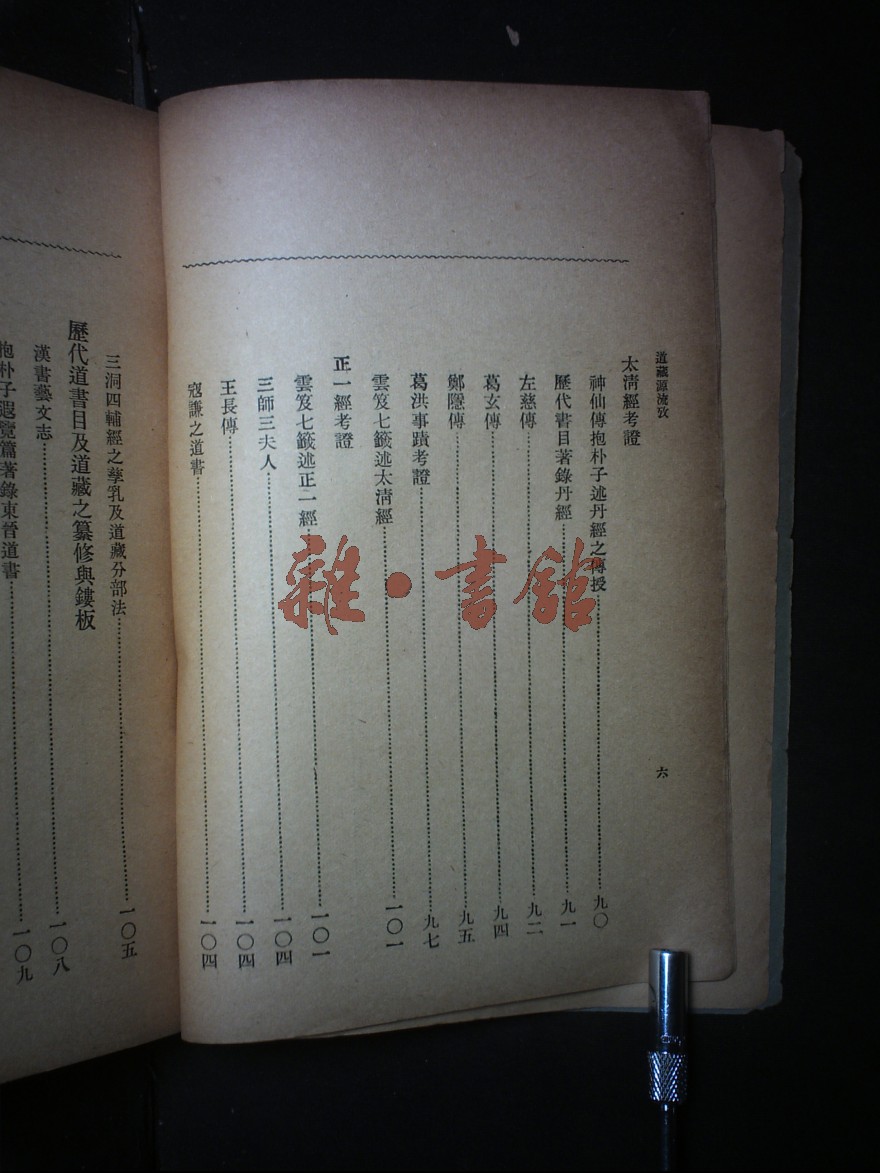 道藏源流攷
六
太淸經考證
神仙傳抱朴子述丹經之傳授 九〇
歷代書目著錄丹經 九一
左慈傳 九二
葛玄傳 九四
鄭隱傳 九五
葛洪事蹟考證 九七
雲笈七籤述太淸經 一〇一
正一經考證
雲笈七籤述正一經 一〇一
三師三夫人 一〇四
王長傳 一〇四
寇謙之道書 一〇四
三洞四輔經之孳乳及道藏分部法 一〇五
歷代道書目及道藏之纂修與鏤板
漢書藝文志 一〇八
抱朴子遐覽篇著錄東晉道書 一〇九
雜·書館